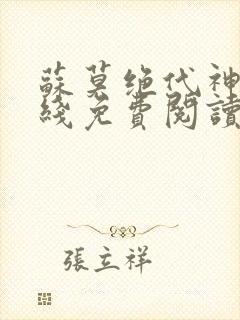 蘇莫绝代神
綫免費閱讀
張立祥